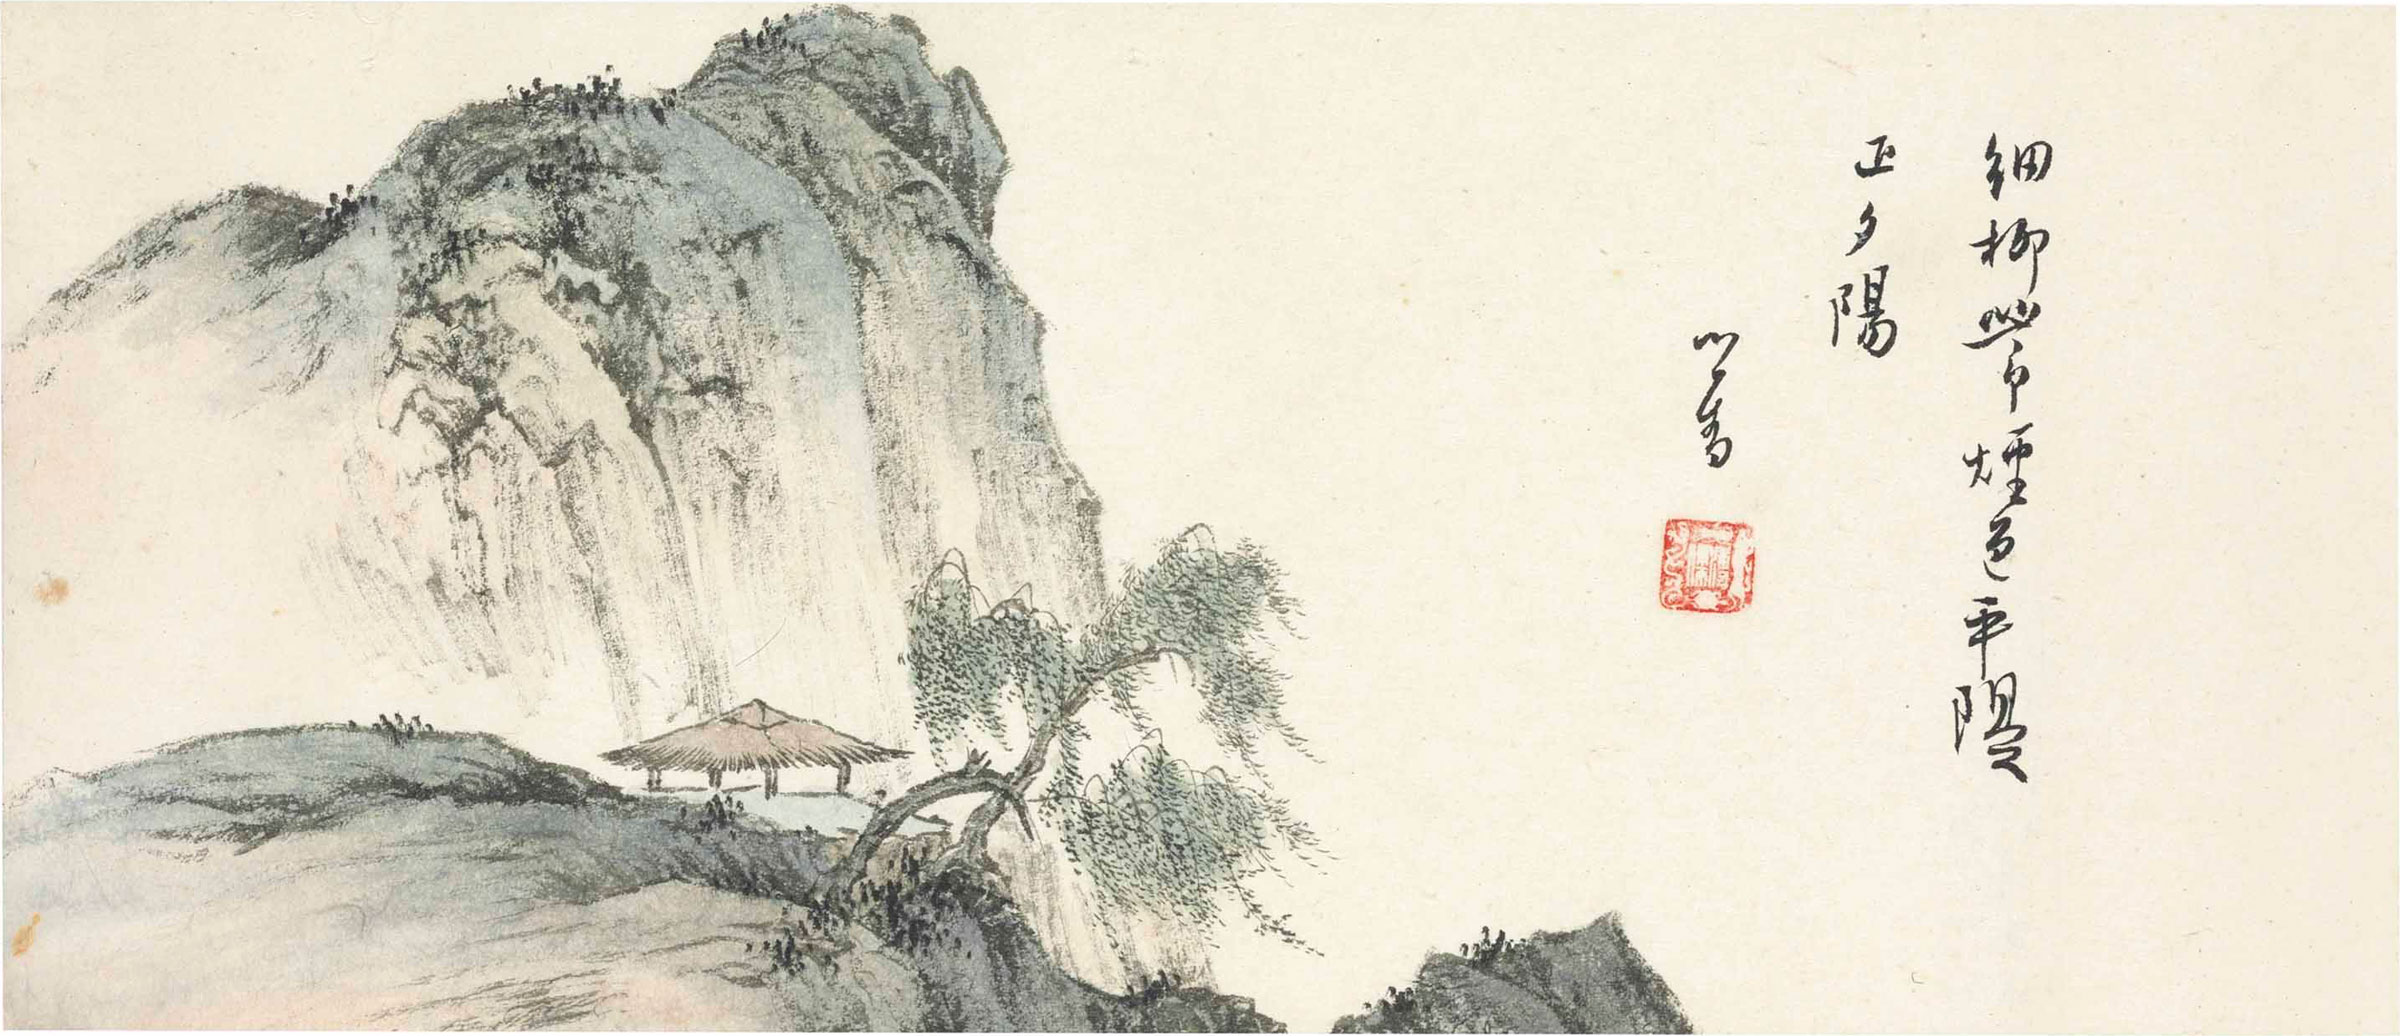 細柳帶煙色平隄
正夕陽
心畬